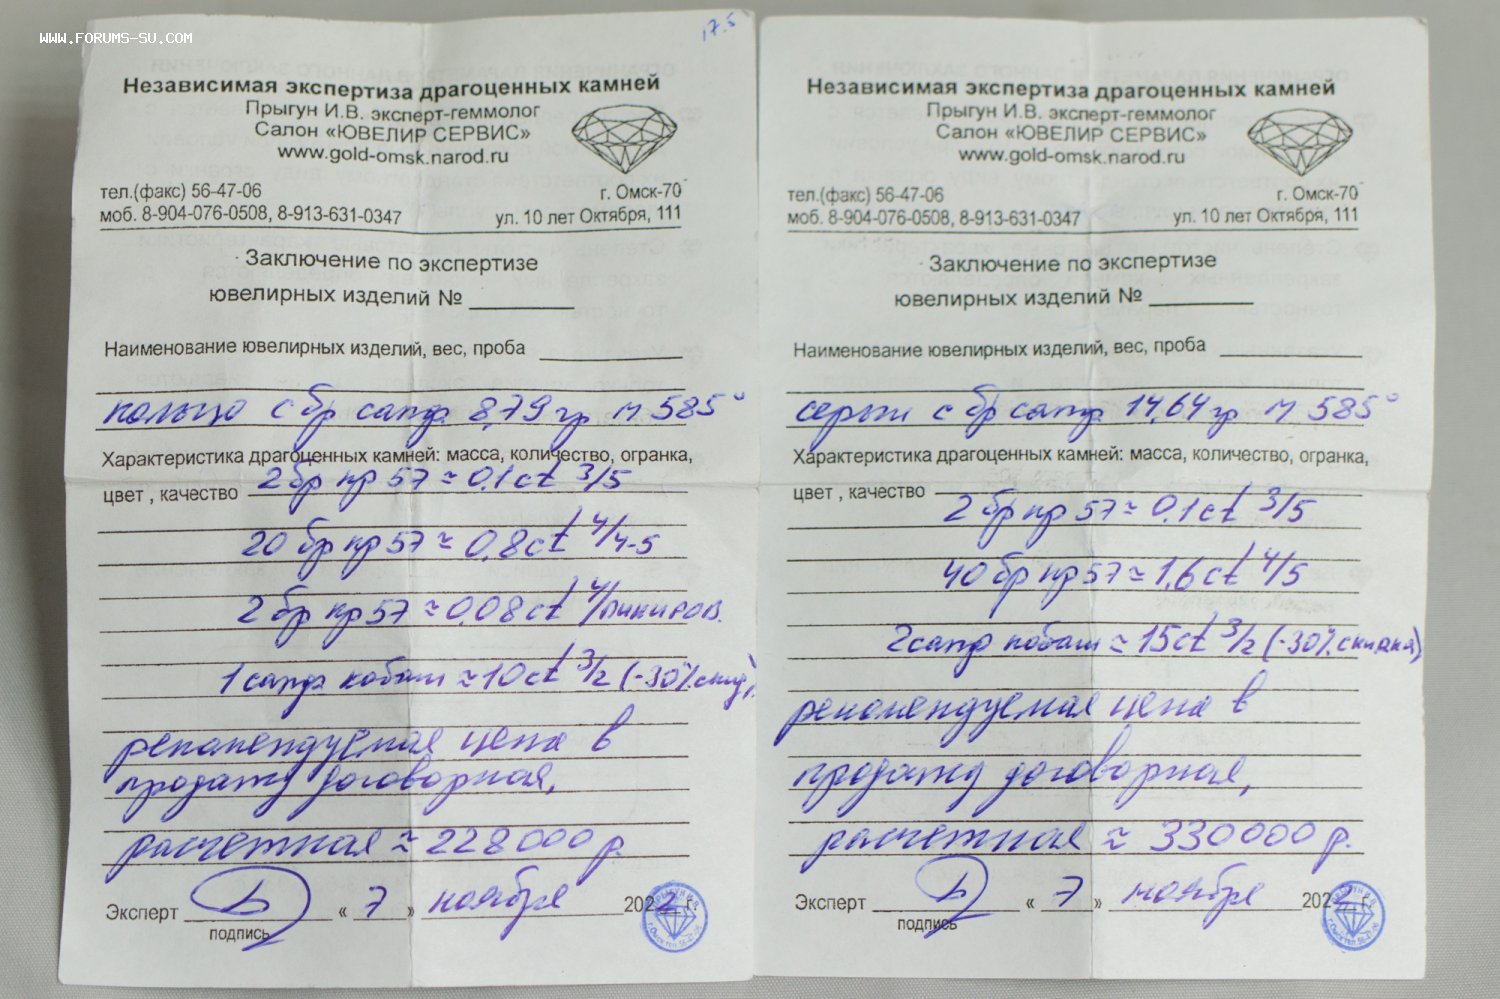 WWW.FORUMS-SU.COM
17.5
Независимая экспертиза драгоценных камней
Прыгун И.В. эксперт-геммолог
Салон «ЮВЕЛИР СЕРВИС»
www.gold-omsk.narod.ru
тел.(факс) 56-47-06 г. Омск-70
моб. 8-904-076-0508, 8-913-631-0347 ул. 10 лет Октября, 111
Заключение по экспертизе
ювелирных изделий №
Наименование ювелирных изделий, вес, проба
кольцо с бр сапф 8,79 гр м 585°
Характеристика драгоценных камней: масса, количество, огранка,
цвет , качество 2 бр кр 57 ≈ 0,1 ct 3/5
20 бр кр 57 ≈ 0,8 ct 4/4-5
2 бр кр 57 ≈ 0,08 ct 4/пикиров.
1 сапф кабаш ≈ 10 ct 3/2 (-30% скид)
рекомендуемая цена в
продажу договорная,
расчетная ≈ 228000 р.
Эксперт « 7 » ноября 2022 г.
подпись
Независимая экспертиза драгоценных камней
Прыгун И.В. эксперт-геммолог
Салон «ЮВЕЛИР СЕРВИС»
www.gold-omsk.narod.ru
тел.(факс) 56-47-06 г. Омск-70
моб. 8-904-076-0508, 8-913-631-0347 ул. 10 лет Октября, 111
Заключение по экспертизе
ювелирных изделий №
Наименование ювелирных изделий, вес, проба
серьги с бр сапф 14,64 гр м 585°
Характеристика драгоценных камней: масса, количество, огранка,
цвет , качество
2 бр кр 57 ≈ 0,1 ct 3/5
40 бр кр 57 ≈ 1,6 ct 4/5
2 сапф кабаш ≈ 15 ct 3/2 (-30% скидка)
рекомендуемая цена в
продажу договорная,
расчетная ≈ 330000 р.
Эксперт « 7 » ноября 2022 г.
подпись